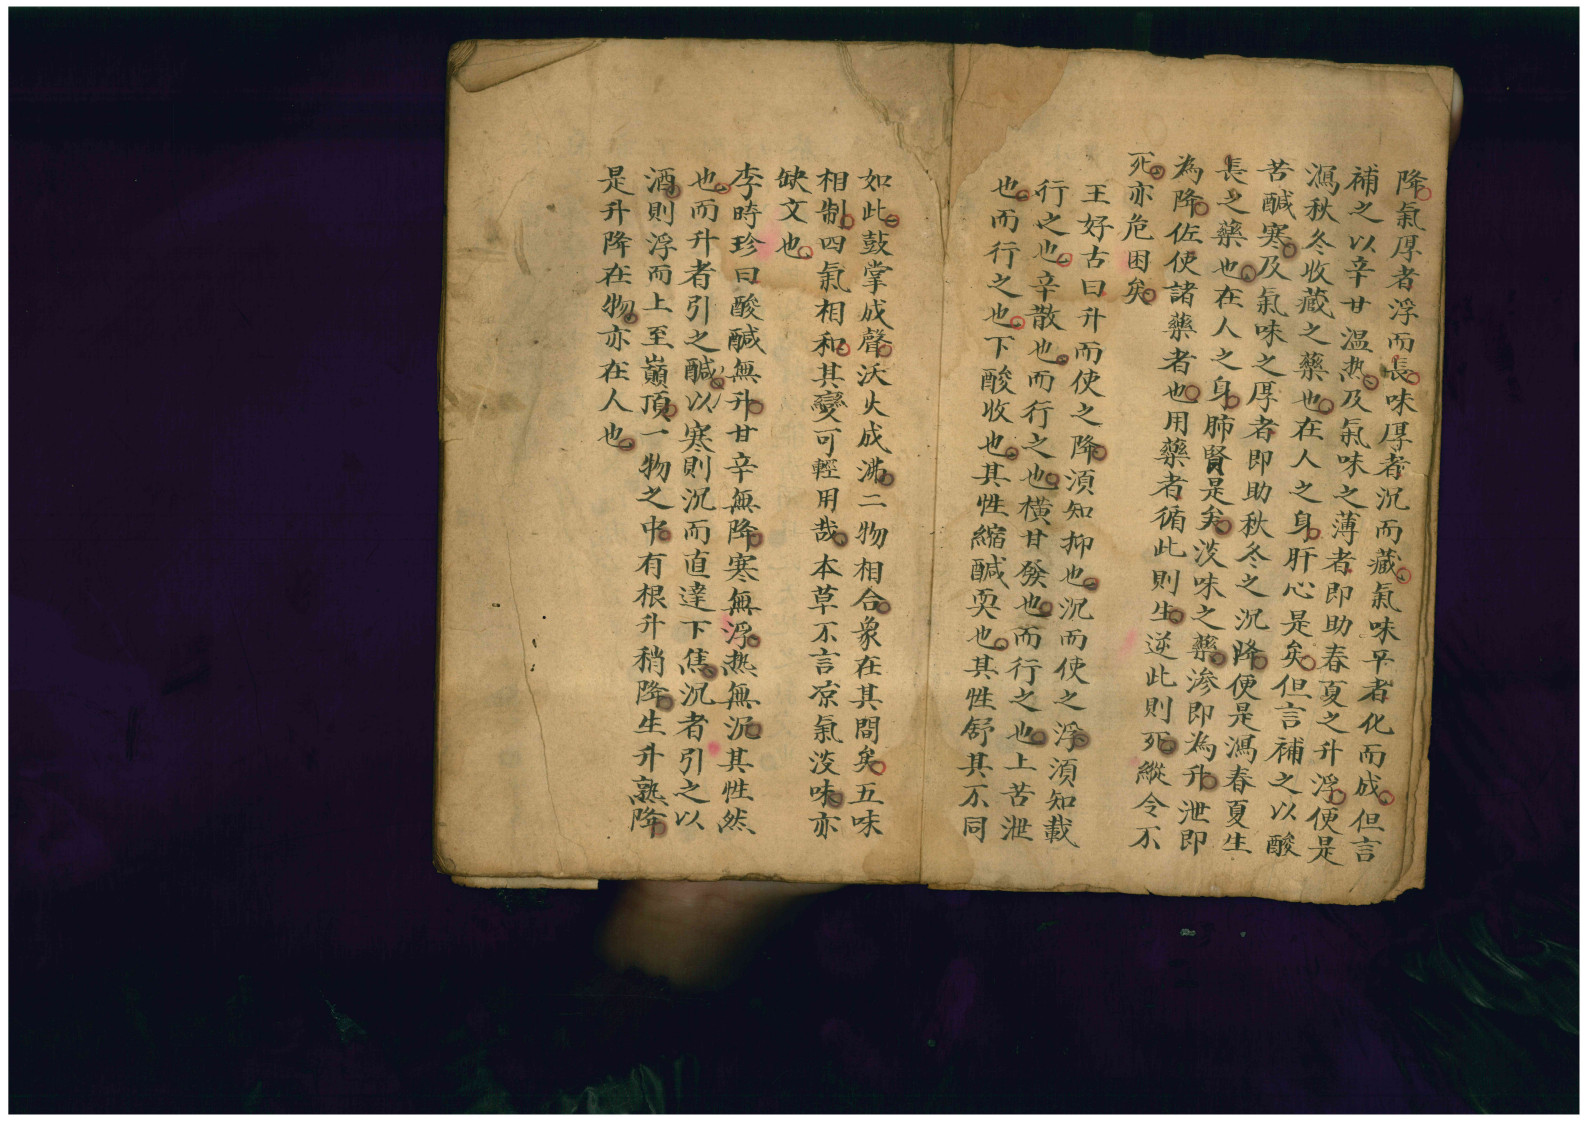 降氣厚者浮而長味厚者沉而藏氣味平者化而成但言
補之以辛甘温热及氣味之薄者即助春夏之升浮便是
瀉秋冬收藏之藥也在人之身肝心是矣但言補之以酸
苦鹹寒及氣味之厚者即助秋冬之沉降便是瀉春夏生
長之藥也在人之身肺賢是矣淡味之藥滲即為升泄即
為降佐使諸藥者也用藥者循此則生逆此則死縱令不
死亦危困矣
王好古曰升而使之降須知抑也沉而使之浮須知載
行之也辛散也而行之也橫甘發也而行之也上苦泄
也而行之也下酸收也其性縮鹹耎也其性舒其不同
如此鼓掌成聲沃火成沸二物相合象在其間矣五味
相制四氣相和其變可輕用哉本草不言凉氣淡味亦
缺文也
李時珍曰酸鹹無升甘辛無降寒無浮热無沉其性然
也而升者引之鹹以寒則沉而直達下焦沉者引之以
酒則浮而上至巔頂一物之中有根升稍降生升熟降
是升降在物亦在人也